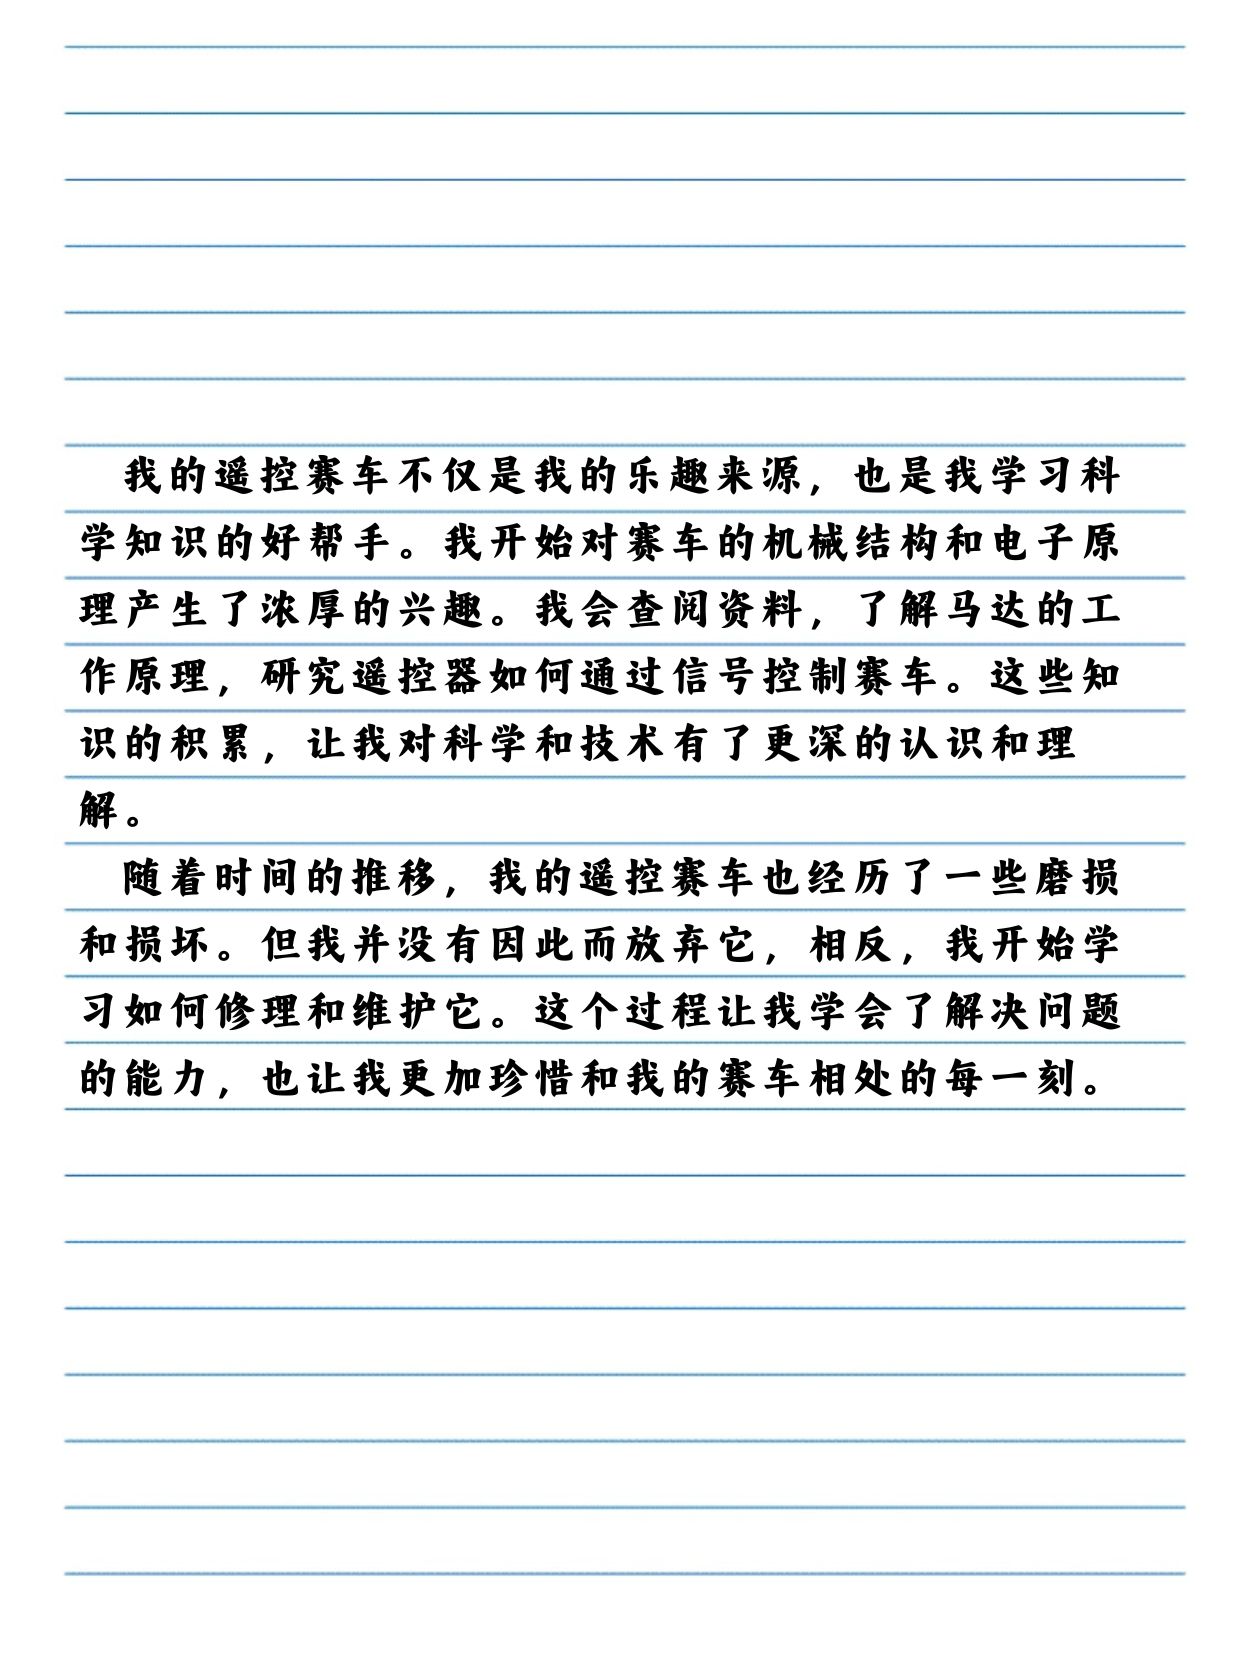 我的遥控赛车不仅是我的乐趣来源，也是我学习科
学知识的好帮手。我开始对赛车的机械结构和电子原
理产生了浓厚的兴趣。我会查阅资料，了解马达的工
作原理，研究遥控器如何通过信号控制赛车。这些知
识的积累，让我对科学和技术有了更深的认识和理
解。
随着时间的推移，我的遥控赛车也经历了一些磨损
和损坏。但我并没有因此而放弃它，相反，我开始学
习如何修理和维护它。这个过程让我学会了解决问题
的能力，也让我更加珍惜和我的赛车相处的每一刻。